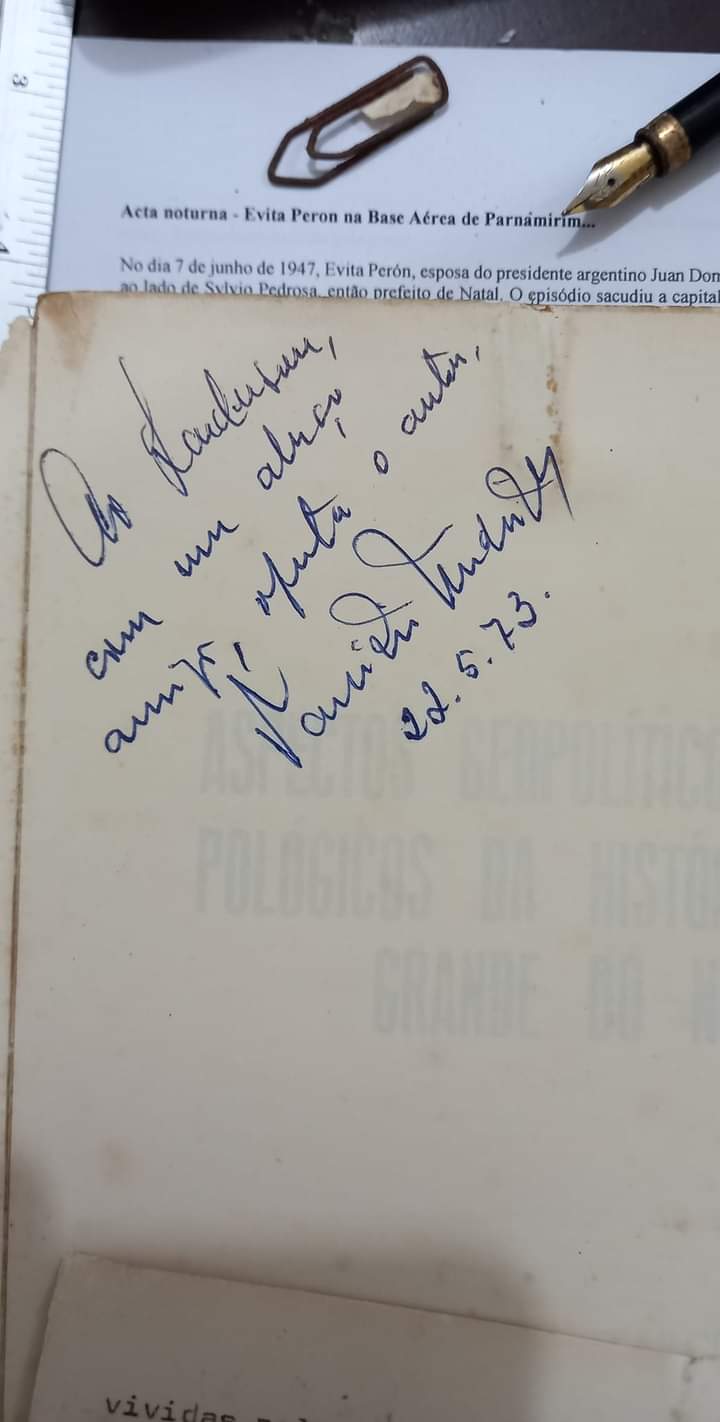 3
Acta noturna - Evita Peron na Base Aérea de Parnamirim...
No dia 7 de junho de 1947, Evita Perón, esposa do presidente argentino Juan Dom
ao lado de Sylvio Pedrosa, então prefeito de Natal. O episódio sacudiu a capital
Ao
com um abraço
amigo, oferta o autor,
22.5.73.
ASPECTOS GEOPOLÍTICO
POLÓGICOS DA HISTÓ
GRANDE DO N
vividas